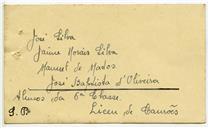 José Silva
Jaime Morais Silva
Manuel de Matos
José Baptista d'Oliveira
Alunos da 6ª Classe
Liceu de Camões